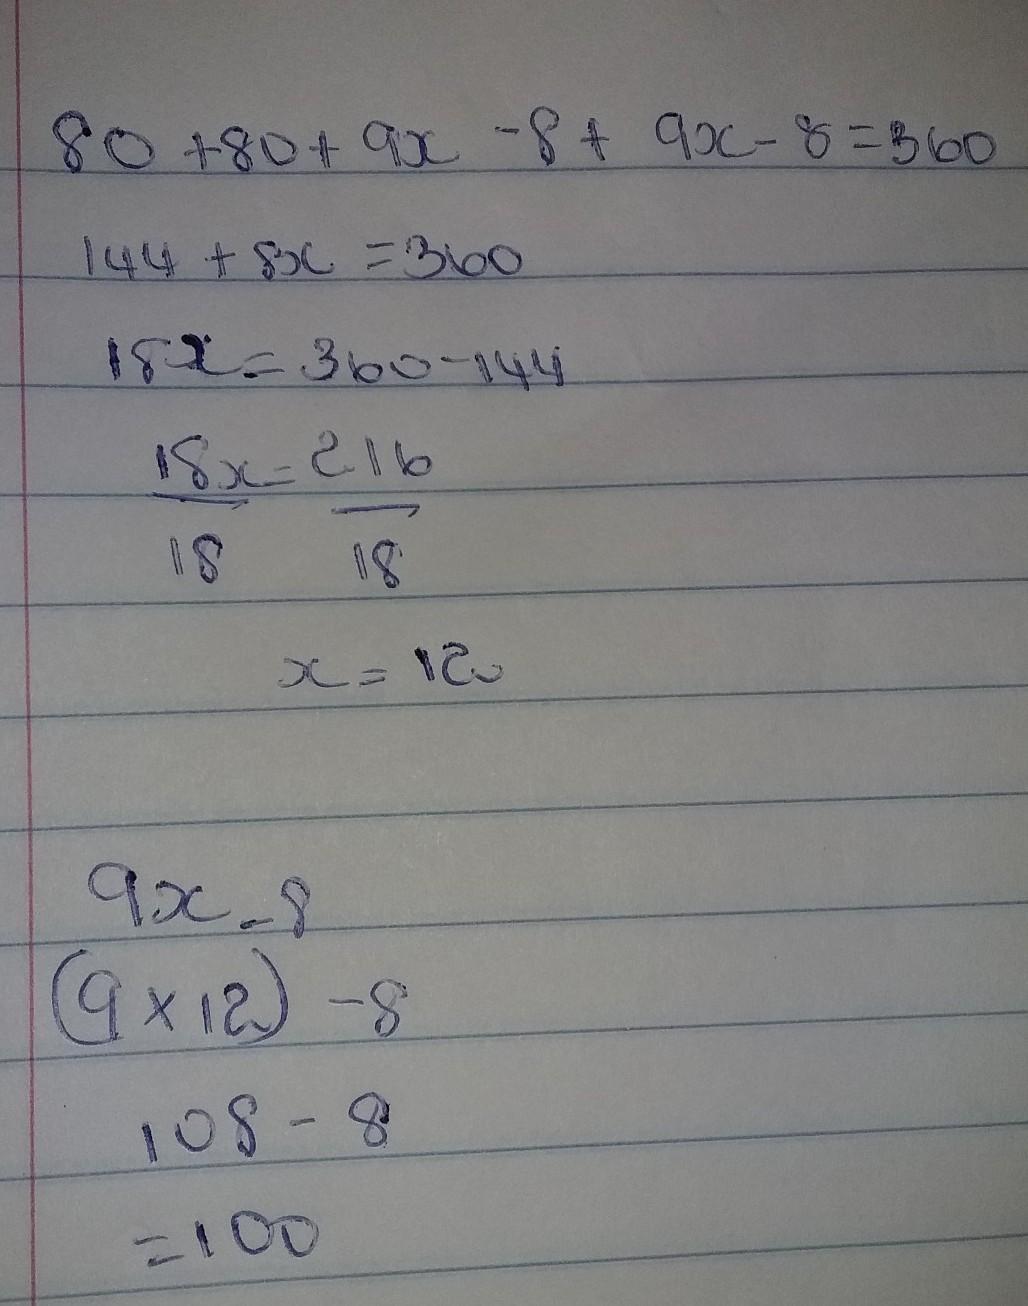 80 + 80 + 9x - 8 + 9x - 8 = 360
144 + 8x = 360
18x = 360 - 144
18x = 216
18 18
x = 12
9x - 8
(9 x 12) - 8
108 - 8
= 100